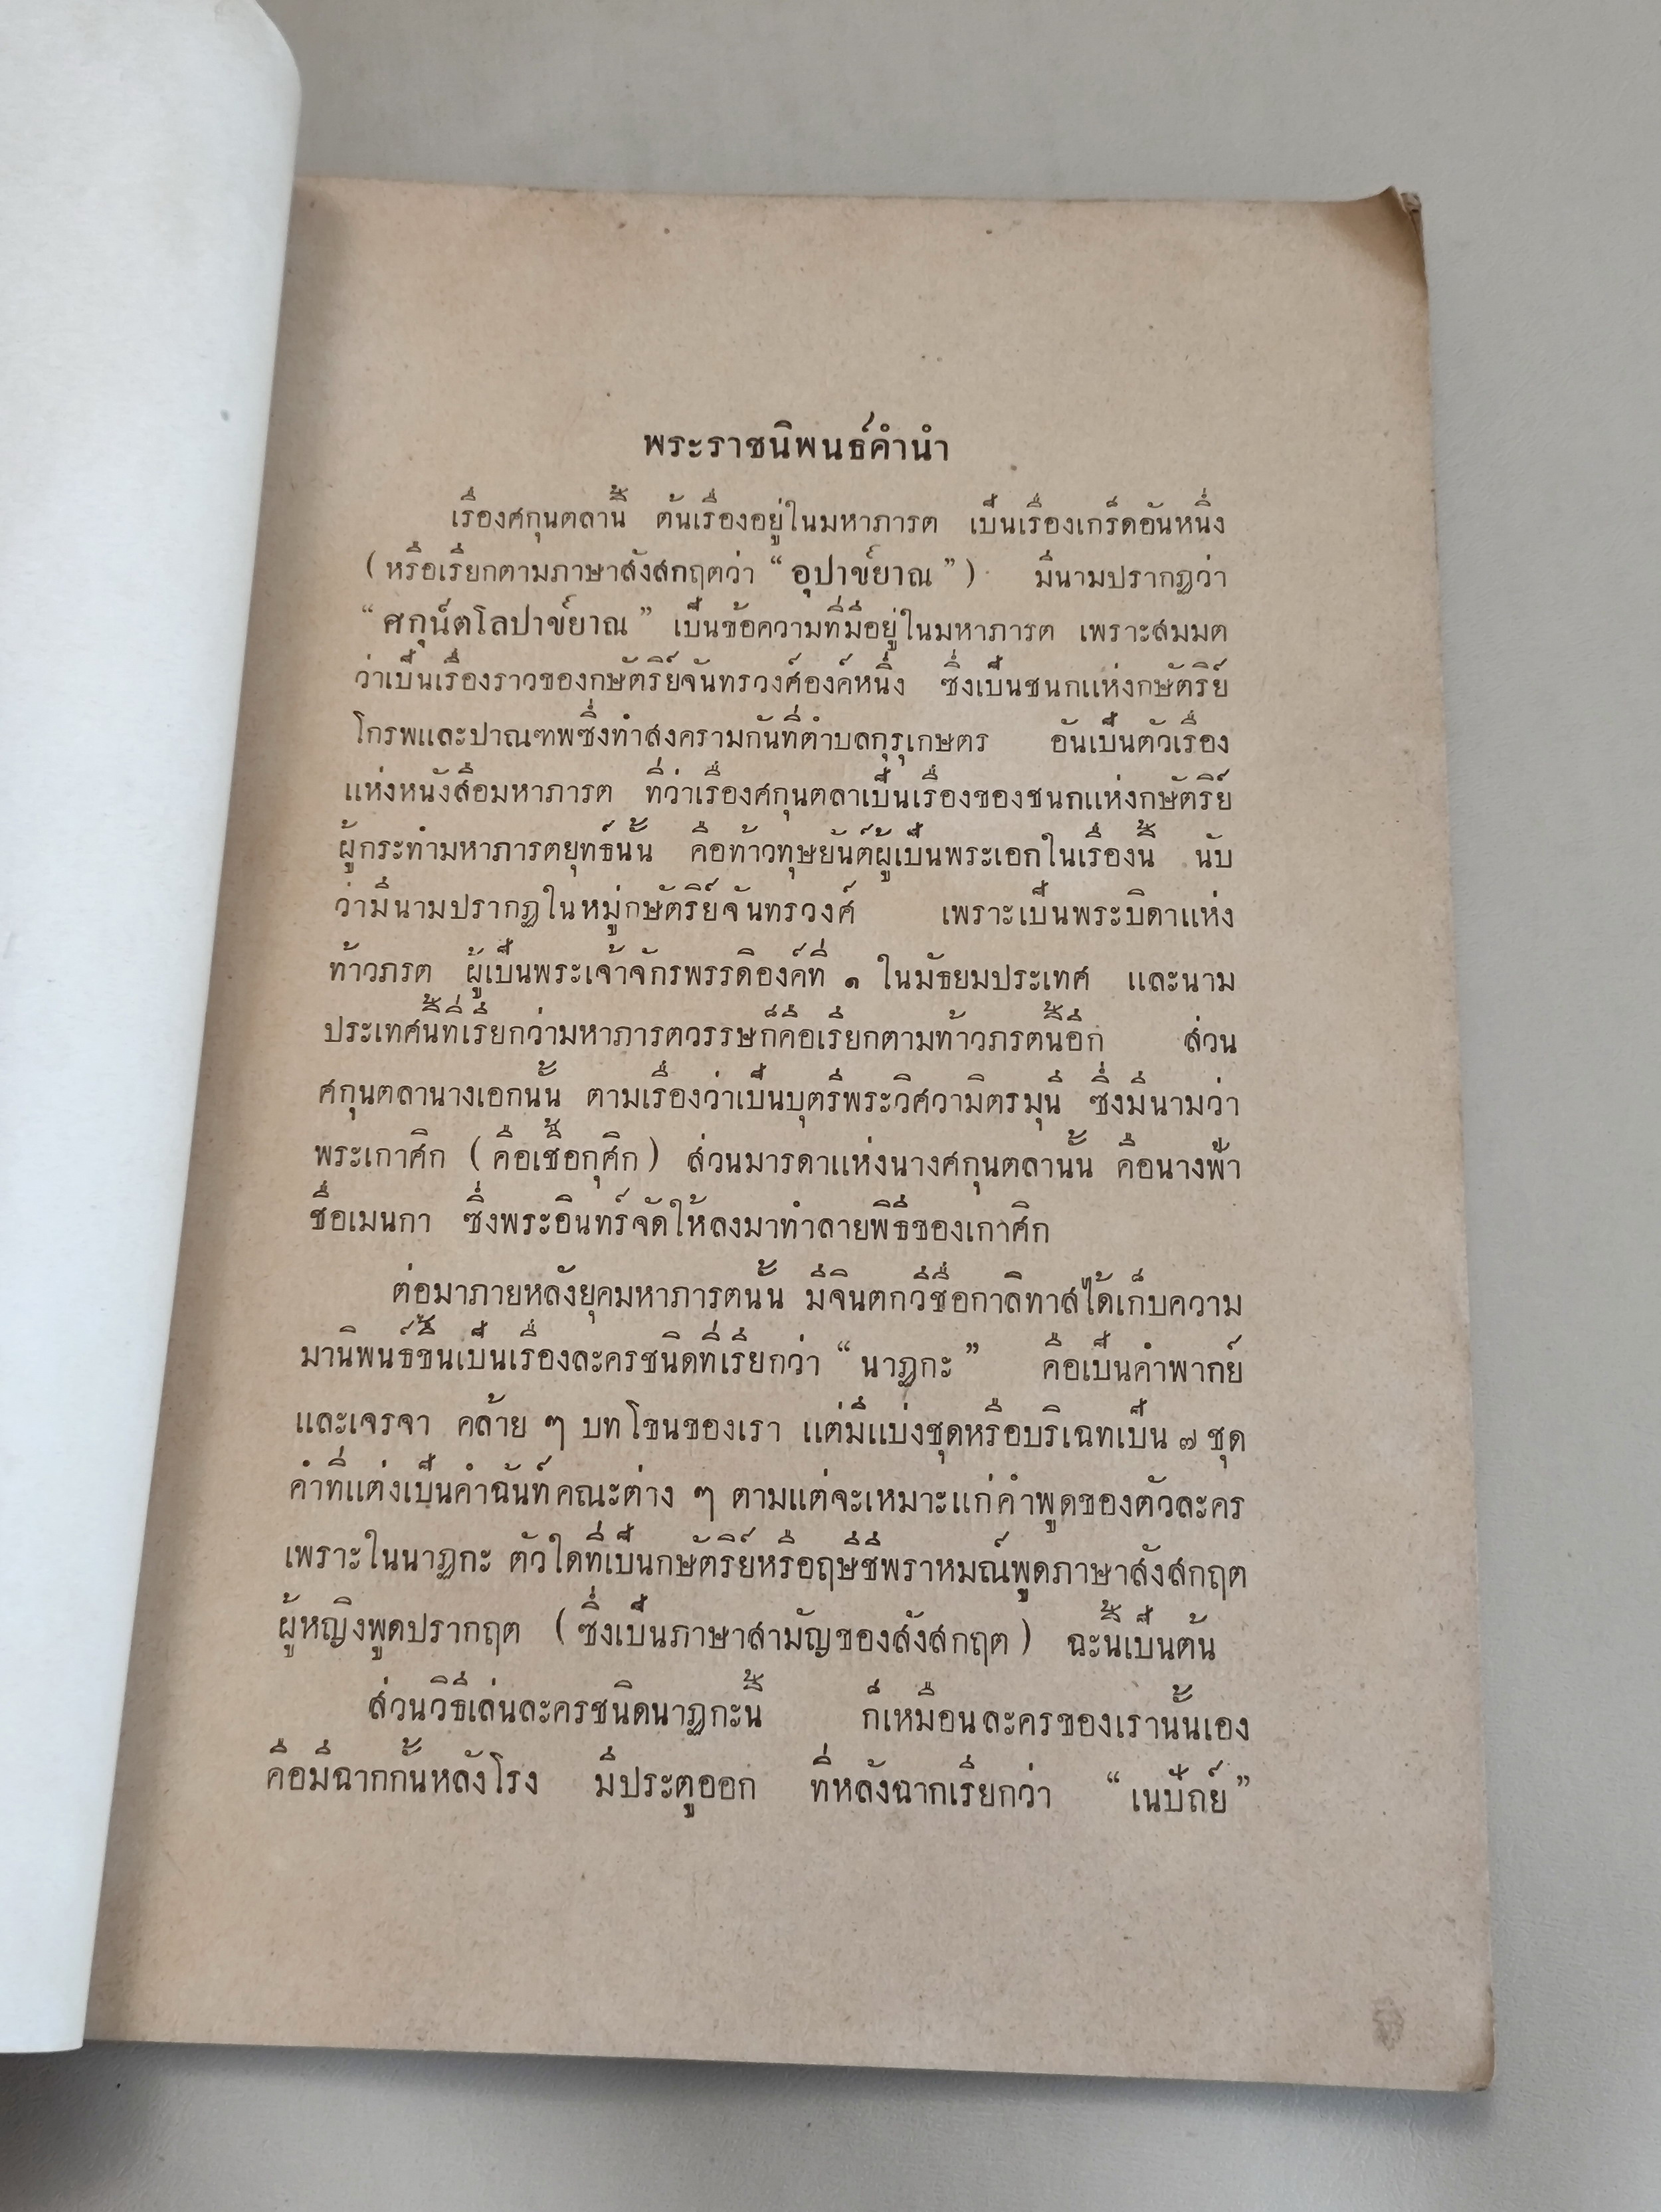 พระราชนิพนธ์คำนำ
เรื่องศกุนตลานี้ ต้นเรื่องอยู่ในมหาภารต เป็นเรื่องเกร็ดอันหนึ่ง
(หรือเรียกตามภาษาสังสกฤตว่า “อุปาข์ยาณ”) มีนามปรากฏว่า
“ศกุน์ตโลปาข์ยาณ” เป็นข้อความที่มีอยู่ในมหาภารต เพราะสมมต
ว่าเป็นเรื่องราวของกษัตริย์จันทรวงศ์องค์หนึ่ง ซึ่งเป็นชนกแห่งกษัตริย์
โกรพและปาณฑพซึ่งทำสงครามกันที่ตำบลกุรุเกษตร อันเป็นตัวเรื่อง
แห่งหนังสือมหาภารต ที่ว่าเรื่องศกุนตลาเป็นเรื่องของชนกแห่งกษัตริย์
ผู้กระทำมหาภารตยุทธ์นั้น คือท้าวทุษยันต์ผู้เป็นพระเอกในเรื่องนี้ นับ
ว่ามีนามปรากฏในหมู่กษัตริย์จันทรวงศ์ เพราะเป็นพระบิดาแห่ง
ท้าวภรต ผู้เป็นพระเจ้าจักรพรรดิองค์ที่ ๑ ในมัธยมประเทศ และนาม
ประเทศนี้ที่เรียกว่ามหาภารตวรรษก็คือเรียกตามท้าวภรตนี้อีก ส่วน
ศกุนตลานางเอกนั้น ตามเรื่องว่าเป็นบุตรีพระวิศวามิตรมุนี ซึ่งมีนามว่า
พระเกาศิก (คือเชื้อกุศิก) ส่วนมารดาแห่งนางศกุนตลานั้น คือนางฟ้า
ชื่อเมนกา ซึ่งพระอินทร์จัดให้ลงมาทำลายพิธีของเกาศิก
ต่อมาภายหลังยุคมหาภารตนั้น มีจินตกวีชื่อกาลิทาสได้เก็บความ
มานิพนธ์ขึ้นเป็นเรื่องละครชนิดที่เรียกว่า “นาฏกะ” คือเป็นคำพากย์
และเจรจา คล้าย ๆ บทโขนของเรา แต่มีแบ่งชุดหรือบริเฉทเป็น ๗ ชุด
คำที่แต่งเป็นคำฉันท์คณะต่าง ๆ ตามแต่จะเหมาะแก่คำพูดของตัวละคร
เพราะในนาฏกะ ตัวใดที่เป็นกษัตริย์หรือฤษีชีพราหมณ์พูดภาษาสังสกฤต
ผู้หญิงพูดปรากฤต (ซึ่งเป็นภาษาสามัญของสังสกฤต) ฉะนี้เป็นต้น
ส่วนวิธีเล่นละครชนิดนาฏกะนี้ ก็เหมือนละครของเรานั้นเอง
คือมีฉากกั้นหลังโรง มีประตูออก ที่หลังฉากเรียกว่า “เนปัถย์”